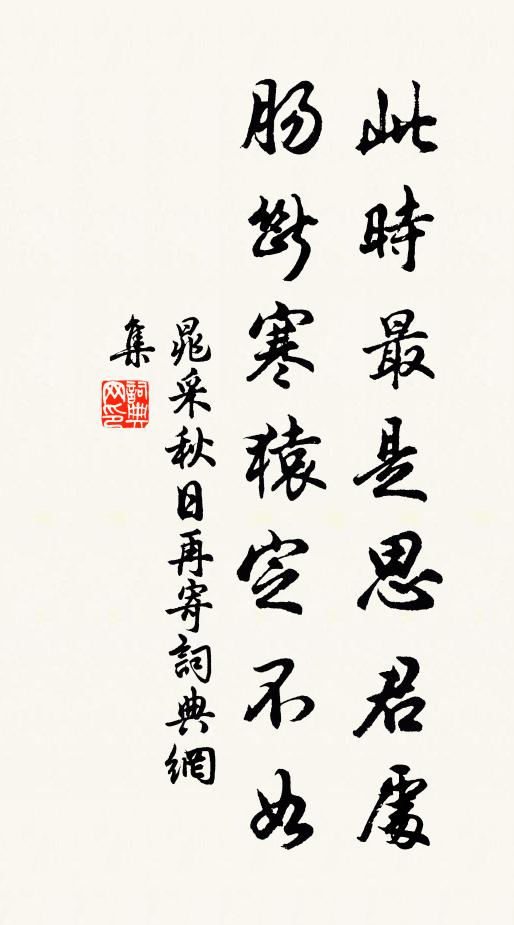 此時最是思君處
腸斷寒猿定不如
晁采秋日再寄詞典網
集
詞典
网印